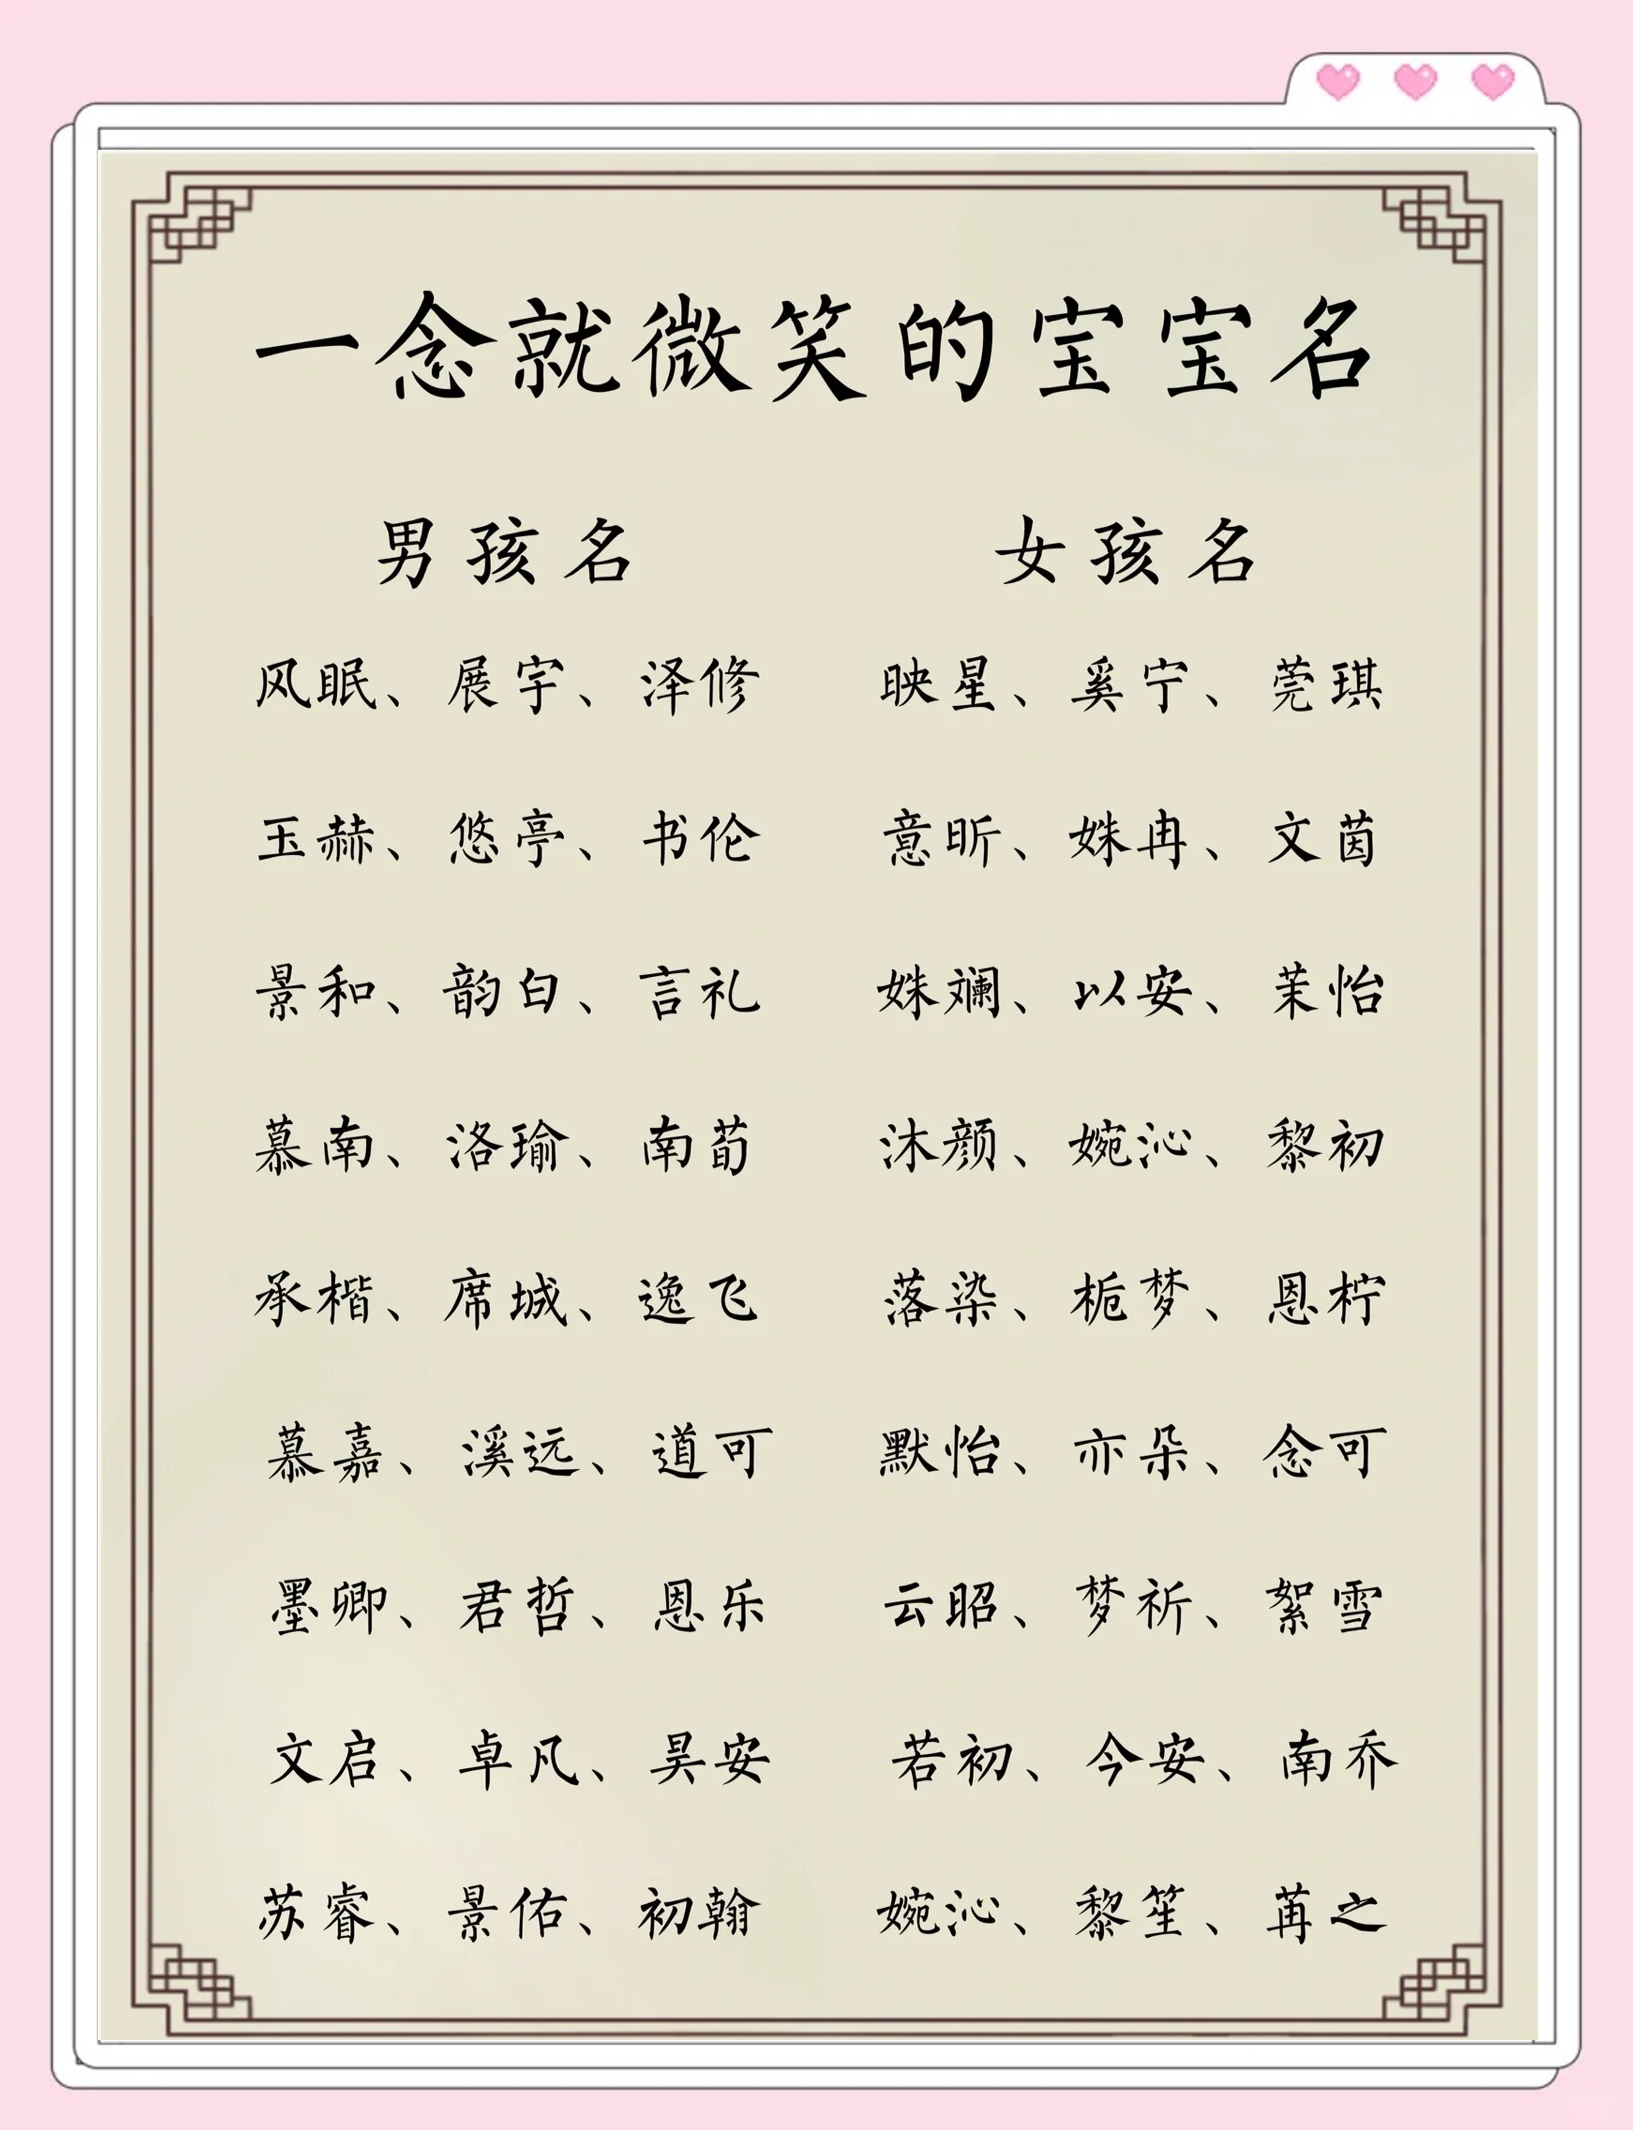 一念就微笑的宝宝名
男孩名 女孩名
风眠、展宇、泽修 映星、奚宁、莞琪
玉赫、悠亭、书伦 意昕、姝冉、文茵
景和、韵白、言礼 姝斓、以安、茉怡
慕南、洛瑜、南荀 沐颜、婉沁、黎初
承楷、席城、逸飞 落染、栀梦、恩柠
慕嘉、溪远、道可 默怡、亦朵、念可
墨卿、君哲、恩乐 云昭、梦祈、絮雪
文启、卓凡、昊安 若初、今安、南乔
苏睿、景佑、初翰 婉沁、黎笙、苒之